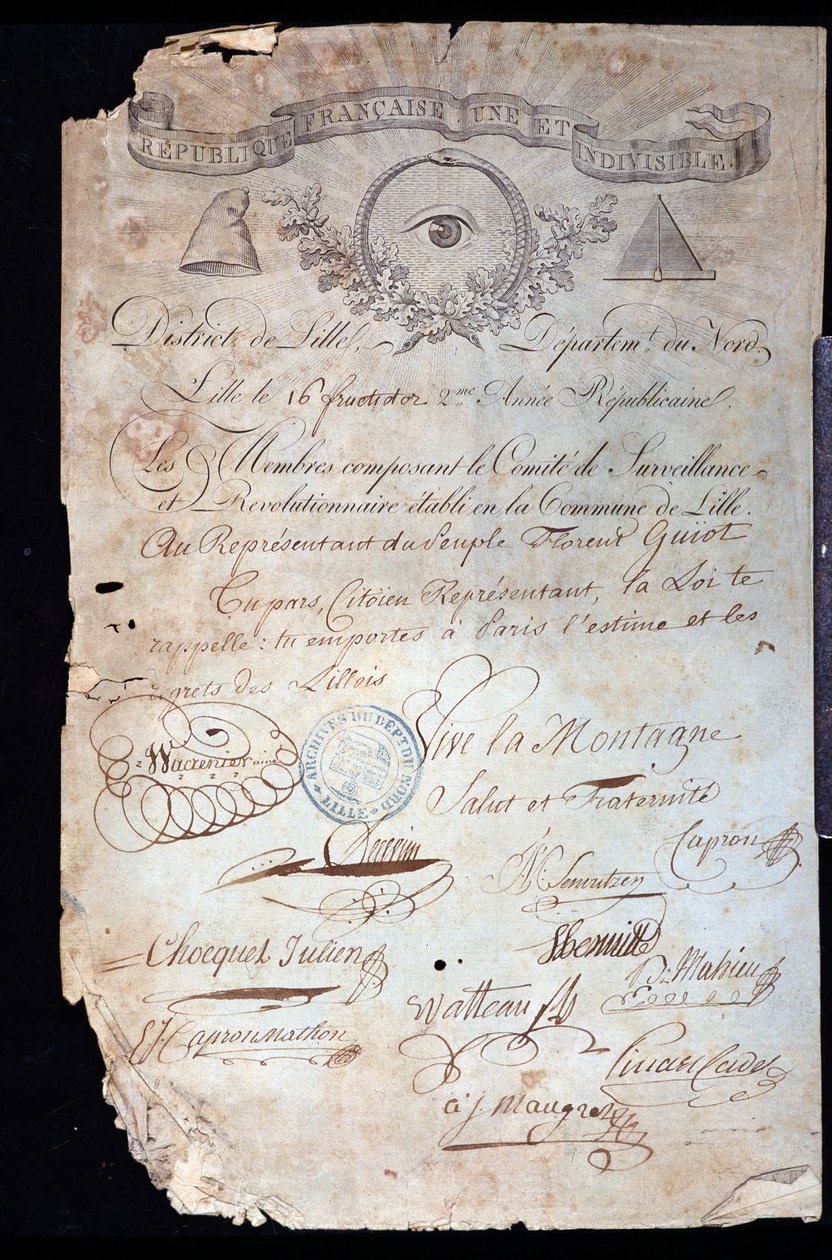 RÉPUBLIQUE FRANÇAISE UNE ET INDIVISIBLE.
District de Lille, Départem.t du Nord.
Lille le 16 fructidor 2.me Année Républicaine.
Les Membres composant le Comité de Surveillance
et Revolutionnaire établi en la Commune de Lille.
Au Représentant du Peuple Florent Guiot
Tu pars, Citoien Représentant, la Loi te
rappelle : tu emportes à Paris l'estime et les
regrets des Lillois
Vive la Montagne
Salut et Fraternité
Wacrenier
ARCHIVES DU DÉPT DU NORD
LILLE
Capron
Chocquet Julien
Watteau
Mahieu
E.J. Capron Mathon
a j. Maugrez